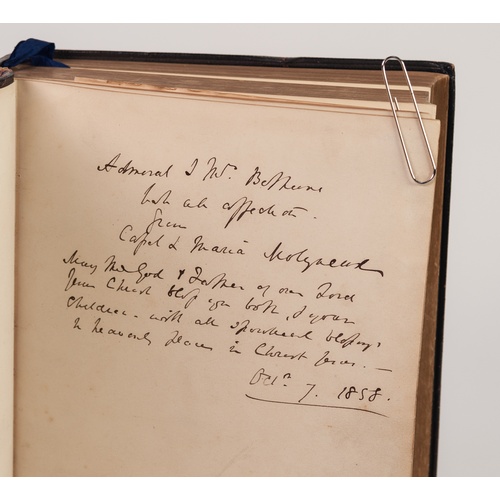 Admiral & Mrs. Bethune
with aff affection.
from
Capel & Maria Molyneux
May the God & Father of our Lord
Jesus Christ bless you both, & your
children - with all spiritual blessings
in heavenly places in Christ Jesus. -
7. 1858.